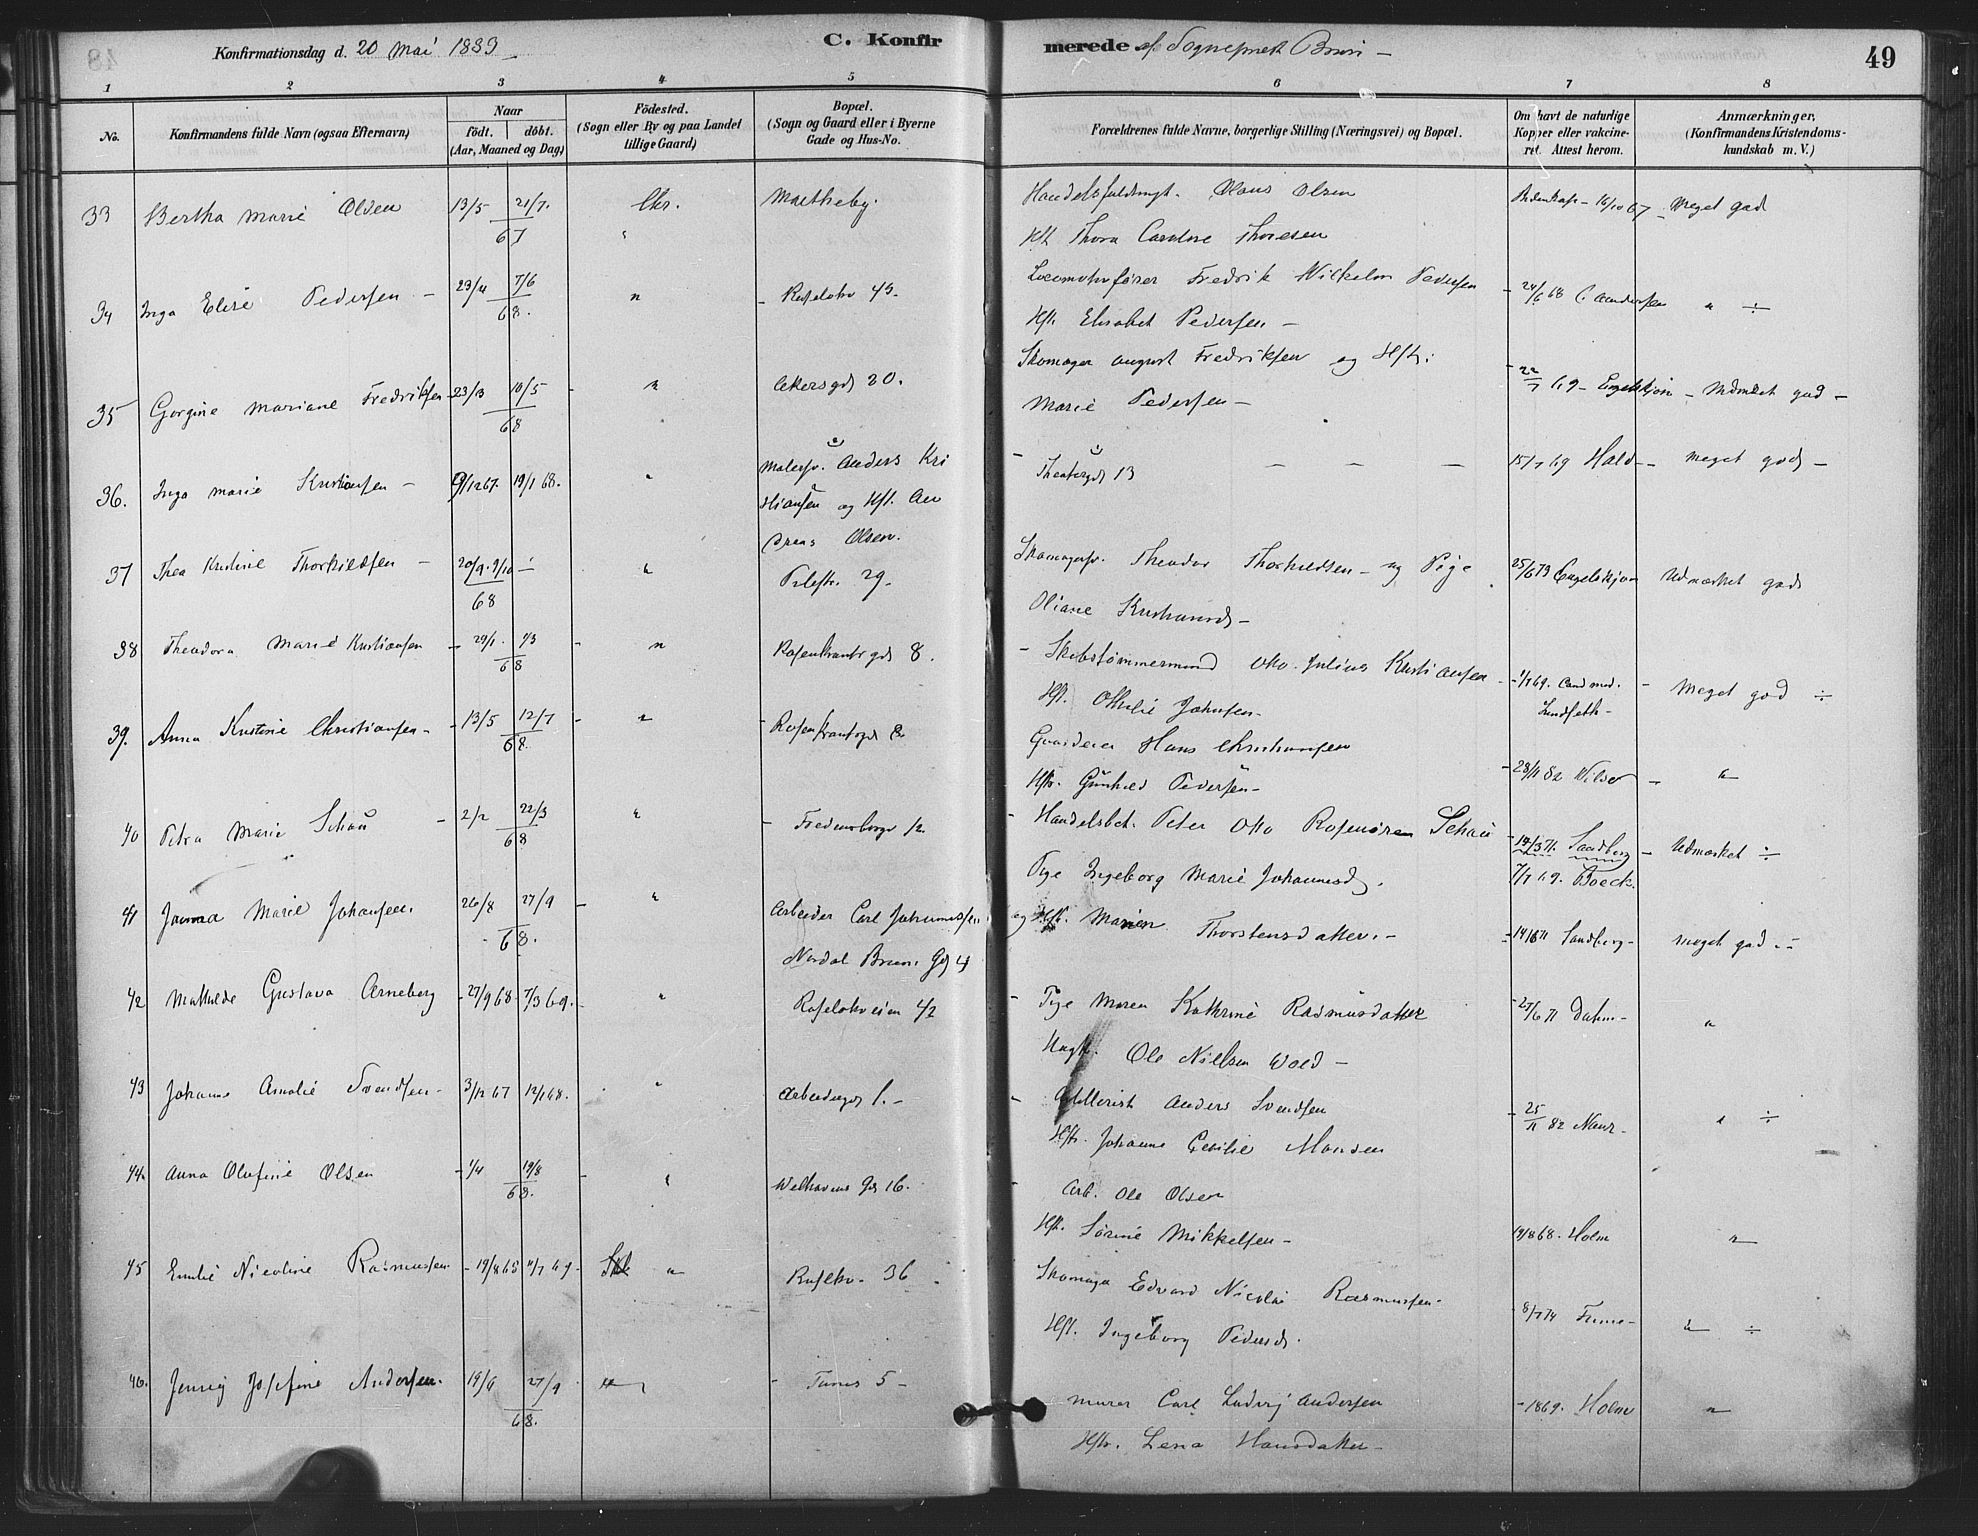 Konfirmationsdag d. 20 Mai 1883
C. Konfirmerede af Sognepræst Bruun
49
1 2 3 4 5 6 7 8
No.
Konfirmandens fulde Navn (ogsaa Efternavn)
Naar
födt. döbt.
(Aar, Maaned og Dag)
Födested.
(Sogn eller By og paa Landet
tillige Gaard)
Bopæl.
(Sogn og Gaard eller i Byerne
Gade og Hus-No.
Forældrenes fulde Navne, borgerlige Stilling (Næringsvei) og Bopæl.
Om havt de naturlige
Kopper eller vakcine-
ret. Attest herom.
Anmærkninger,
(Konfirmandens Kristendoms-
kundskab m. V.)
33 Bertha Marie Olsen 13/5 21/7 67 Chr. Handelsfuldmgt. Olaus Olsen 16/10 67 Meget god
Hst. Thora Caroline Thoresen
34 Inga Elise Pedersen 23/4 7/6 68. " Lokomotivfører Fredrik Wilhelm Pedersen 24/6 68 C. Andersen " ÷
Hst. Elisabet Pedersen
35 Gorgine Mariane Fredriksen 23/3 10/5 68 " Akersgd 20. Skomager August Fredriksen og Hst. 22/7 69 Engelskjøn Udmærket god
Marie Pedersen
36. Inga Marie Kristiansen 9/12 67. 19/1 68. " Malersv. Anders Kri
stiansen og Hst. An
dreas Olsen. Theatergd 13 15/7 69 Hald meget god
37 Thea Kristine Thorkildsen 20/9 9/10 68 " Pilestr. 29. Skomagersv. Theodor Thorkildsen og Pige 25/6 73 Engelskjøn Udmærket god
Oliane Kristiansd.
38 Theodora Marie Kristiansen 29/1 1/3 68 " Rosenkrantz gd 8. Skibstømmermand Otto Julius Kristiansen 1/7 69. Cand med. Lundseth Meget god ÷
Hst. Othilie Johnsen
39. Anna Kristine Christiansen 13/5 12/7 68. " Rosenkrantzgd 8 Gaardeier Hans Christiansen
Hst. Gunhild Pedersen 28/11 82 Wilse "
40 Petra Marie Schau 2/2 22/3 68 " Fredensborgv 12 Handelsbet. Peter Otto Rosenøren Schau 14/3 71. Sandberg Udmærket ÷
Pige Ingeborg Marie Johannesd. 7/7 69. Boeck.
41 Janna Marie Johansen 26/8 27/9 68. " Arbeider Carl Johannessen og Hst. Maren Thorstensdatter. 14/6 71 Sandberg meget god
Nordal Bruns Gd 4
42 Mathilde Gustava Arneberg 27/9 68 7/3 69. " Roseløkveien 42 Pige Maren Kathrine Rasmusdatter 27/6 71 Dahm "
Ungk. Ole Nielsen Wold
43 Johanne Amalie Svendsen 3/12 67 12/1 68. " Arbeidergd 1. Artillerist Anders Svendsen 25/11 82 " ÷
Hst. Johanne Cecilie Monsen
44. Anna Olufine Olsen 1/4 19/8 68. " Welhavens Gd 16. Arb. Ole Olsen
Hst. Sørine Mikkelsen 19/8 68. Holm "
45 Emilie Nicoline Rasmussen 19/8 65 11/7 69 " Roseløkv. 36 Skomager Edvard Nicolai Rasmussen
Hst. Ingeborg Pedersd. 8/7 74 " ÷
46. Jenny Josefine Andersen. 19/6 27/9 68. " Tunes 5 Murer Carl Ludvig Andersen 1869. Holm "
Hst. Lena Hansdatter